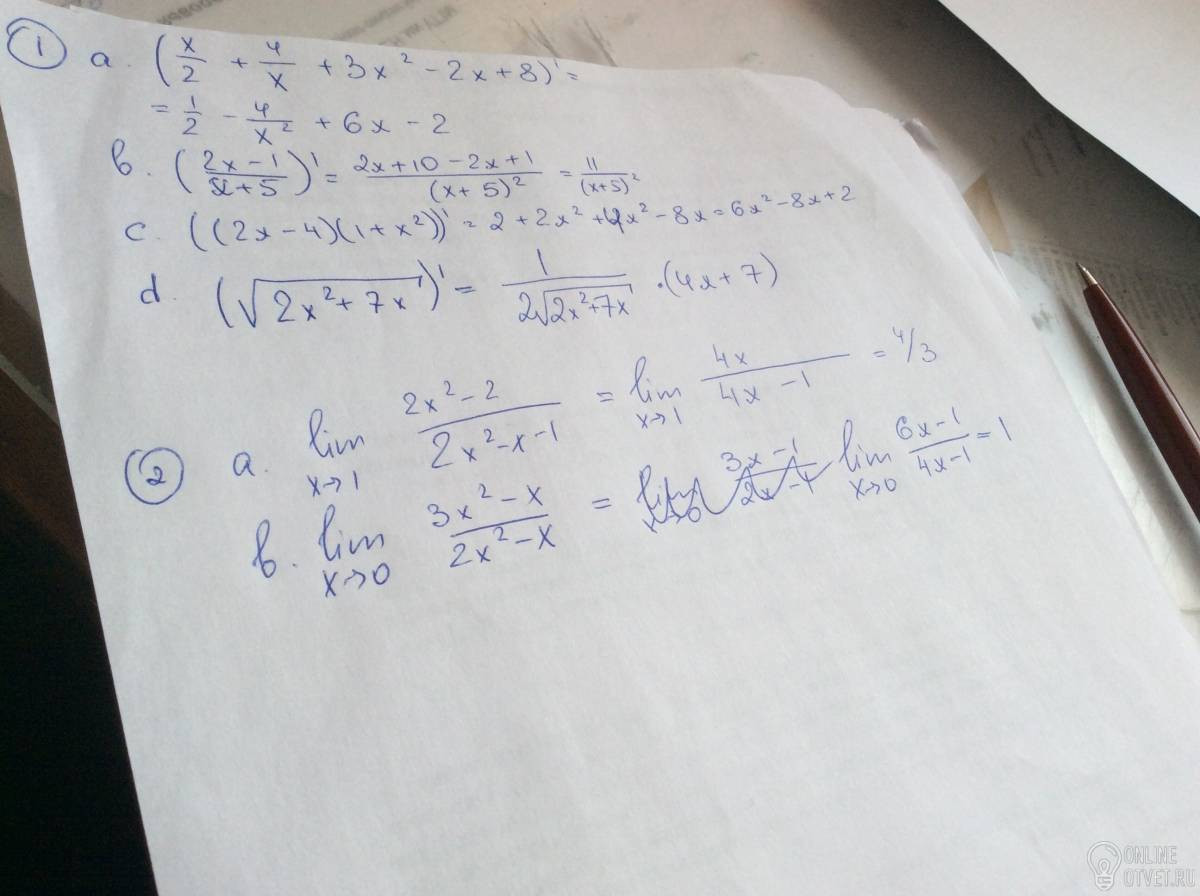 1 a. (x/2 + 4/x + 3x² - 2x + 8)' =
= 1/2 - 4/x² + 6x - 2
b. ((2x-1)/(x+5))' = (2x+10-2x+1)/(x+5)² = 11/(x+5)²
c. ((2x-4)(1+x²))' = 2+2x²+4x²-8x = 6x²-8x+2
d. (√(2x²+7x))' = 1/(2√(2x²+7x)) · (4x+7)
2 a. lim x→1 (2x²-2)/(2x²-x-1) = lim x→1 4x/(4x-1) = 4/3
b. lim x→0 (3x²-x)/(2x²-x) = lim x→0 (6x-1)/(4x-1) = 1
ONLINE
OTVET.RU